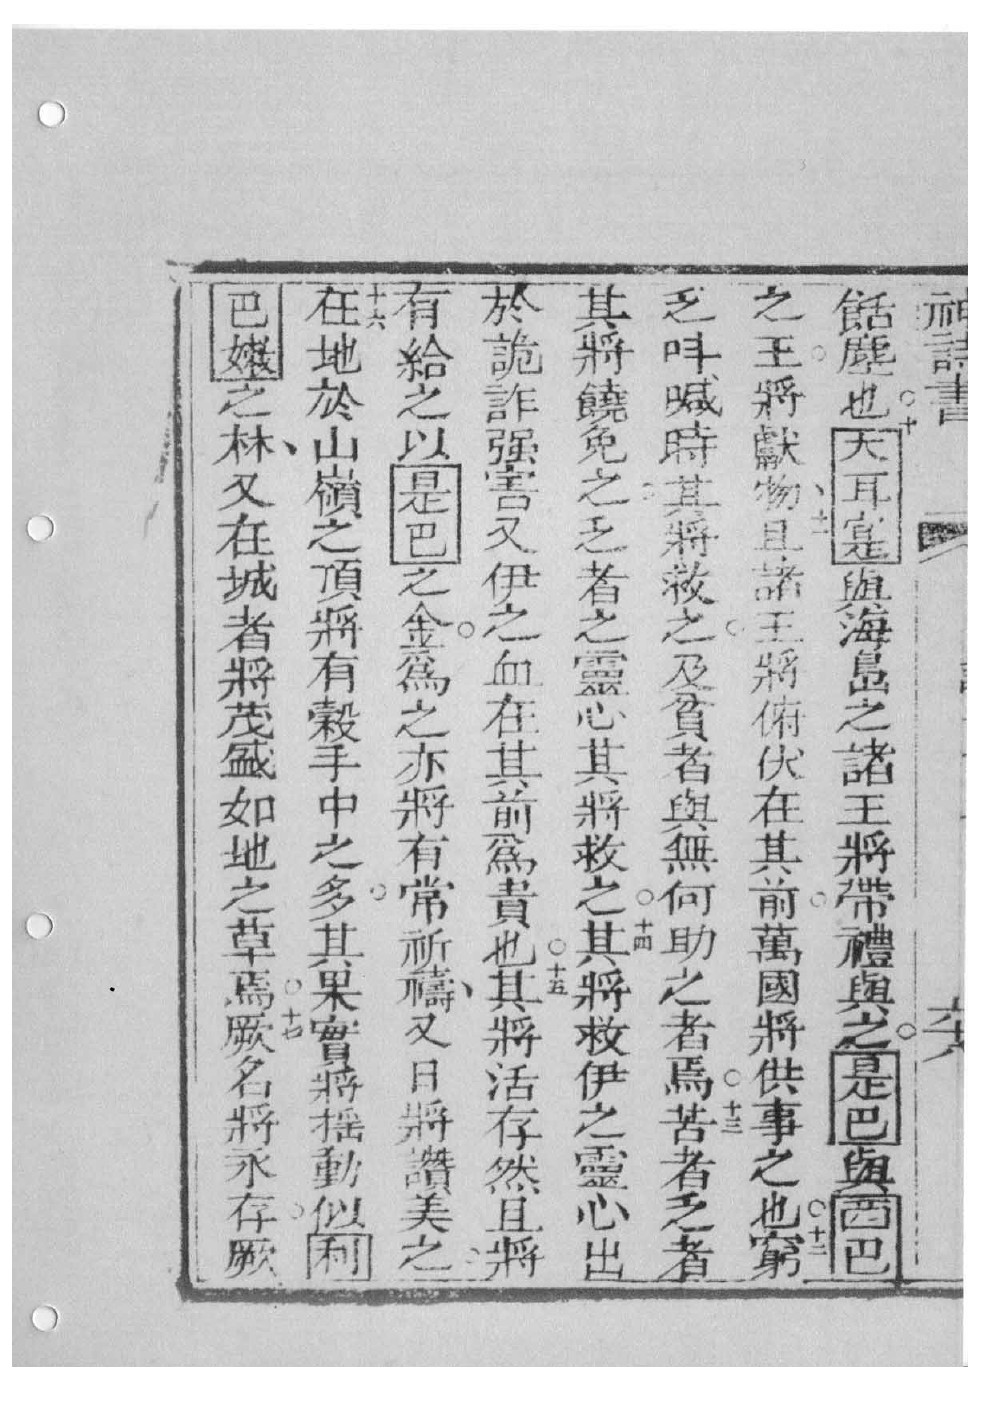 神詩書
餂塵也○十天耳寔與海島之諸王將帶禮與之○是巴與西巴
之王○將獻物、十一且諸王將俯伏在其前○萬國將供事之也○十二窮
乏呌喊時其將救之○及貧者與無何助之者焉○十三苦者乏者
其將饒免之○乏者之靈心其將救之○十四其將救伊之靈心出
於詭詐强害又伊之血在其前爲貴也○十五其將活存然且將
有給之以是巴之金○爲之亦將有常祈禱、又日將讚美之○
十六在地於山嶺之頂將有穀手中之多○其果實將搖動似利
巴嫩之林、又在城者將茂盛如地之草焉○十七厥名將永存○厥